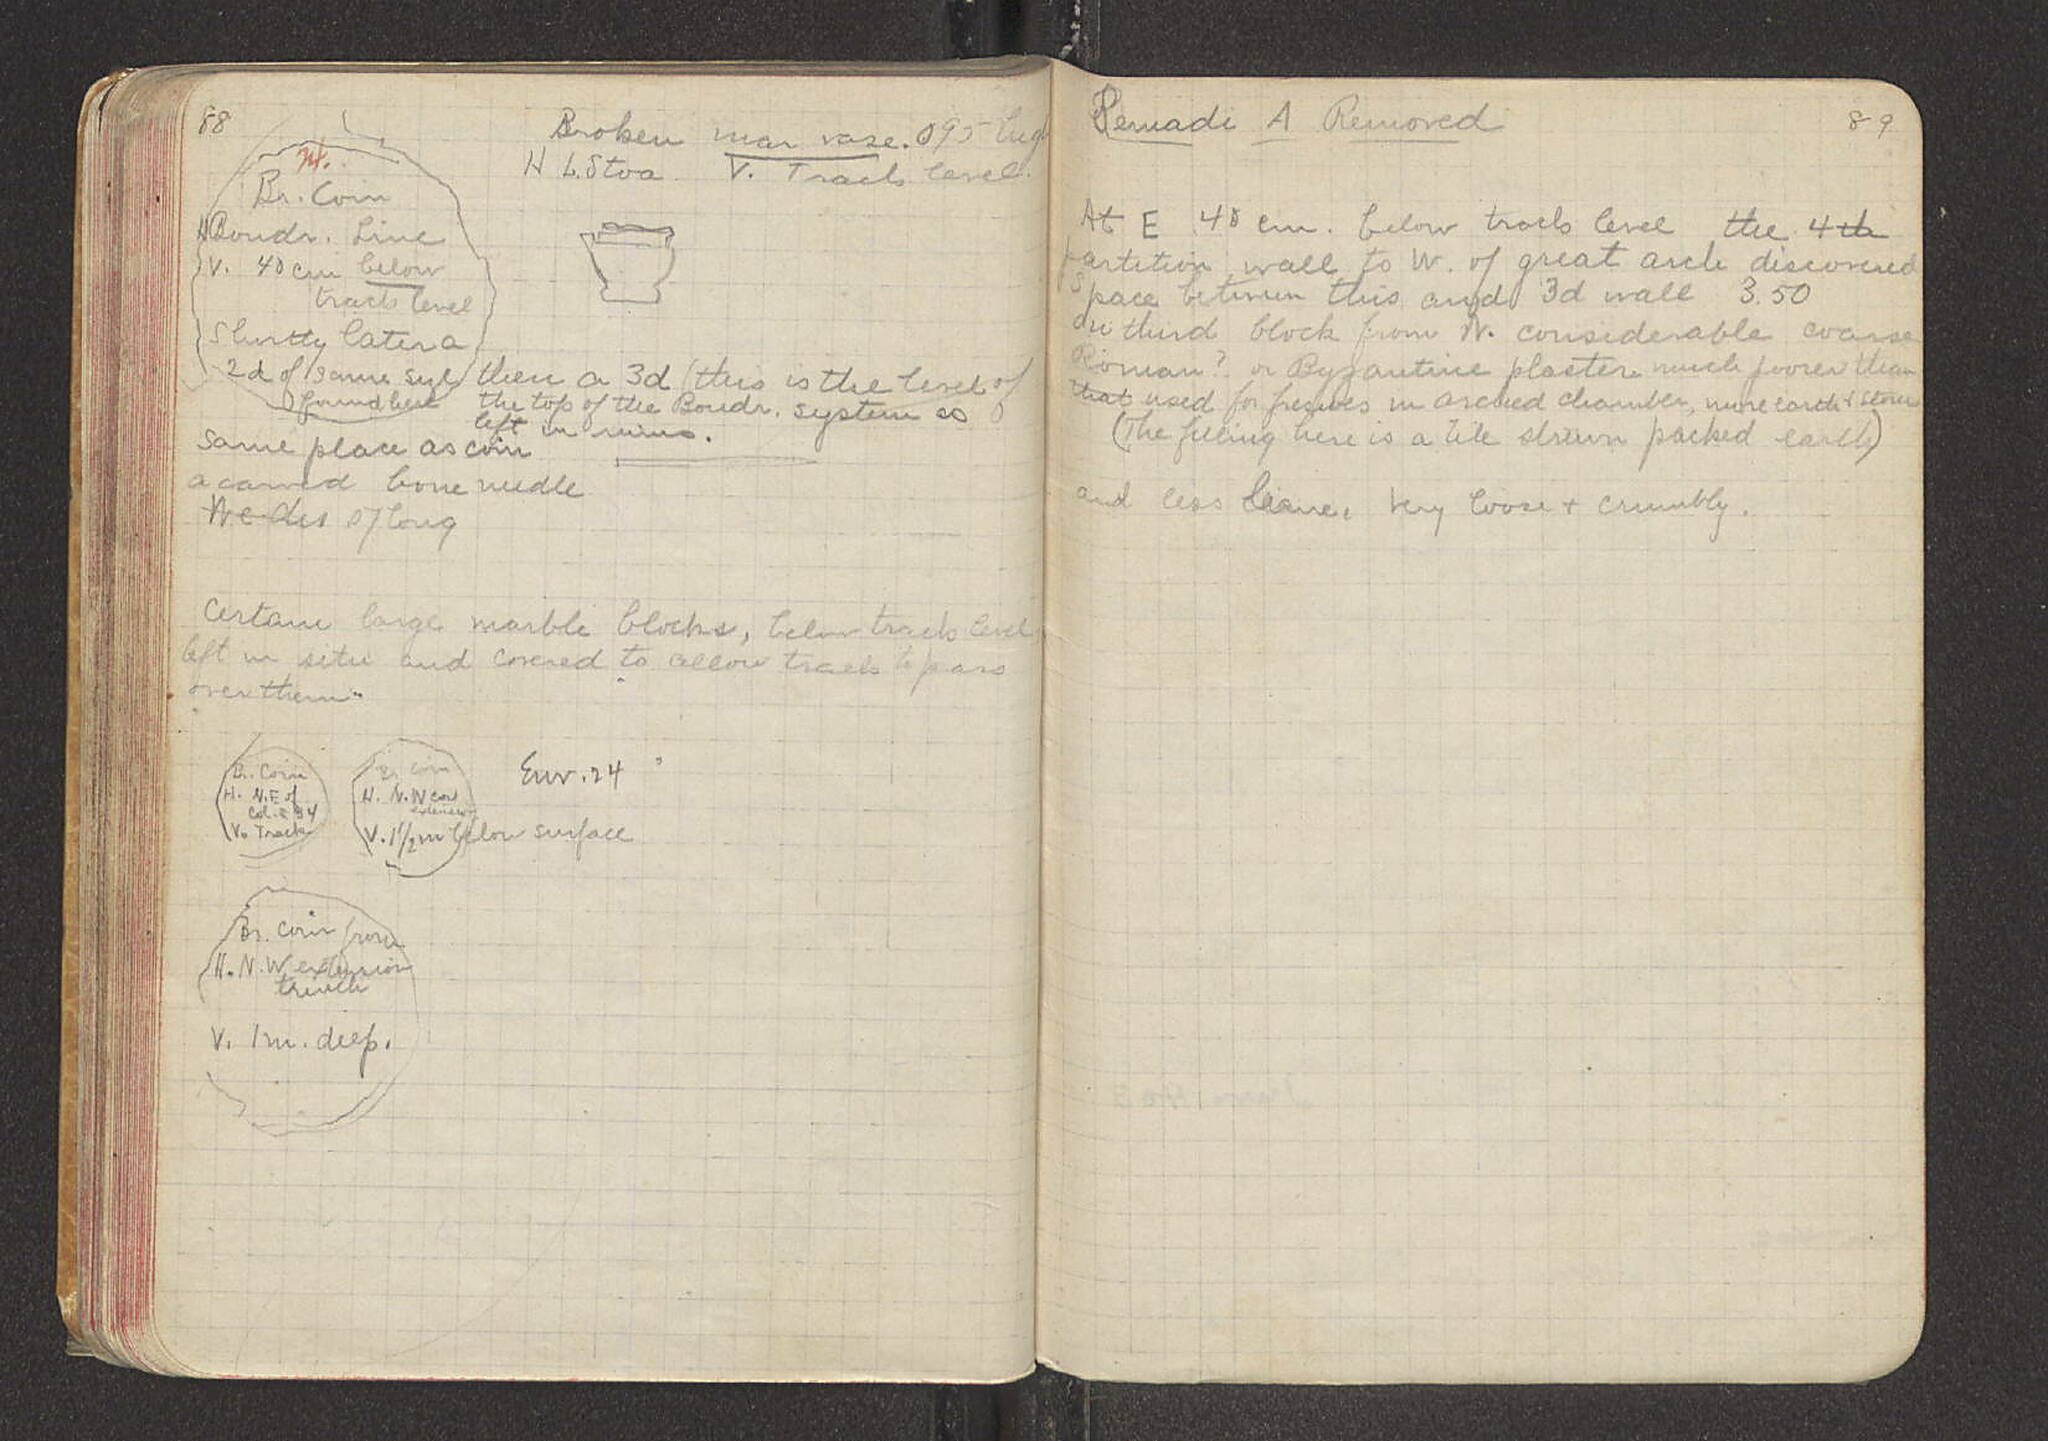 88
Broken mar vase. 095 high
H L. Stoa. V. Track level.
Br. Coin
H Boudr. Line
V. 40 cm below
track level
Shortly later a
2d of same size then a 3d (this is the level of
found here the top of the Boudr. system so
left in ruins.
same place as coin
a carved bone needle
07 long
Certain large marble blocks, below track level
left in situ and covered to allow track to pass
over them.
Br. Coin
H. N.E of
Col.
V. Track
Br coin
H. N.W cor
extension
V. 1 1/2 m below surface
Env. 24
Br. coin from
H. N.W extension
trench
V. 1 m. deep.
89
Remadi A Removed
At E 40 cm. below track level the 4th
partition wall to W. of great arch discovered
Space between this and 3d wall 3.50
On third block from W. considerable coarse
Roman? or Byzantine plaster much poorer than
that used for frescoes in arched chamber, more earth & stones
(The filling here is a tile strewn packed earth)
and less lime. Very loose + crumbly.